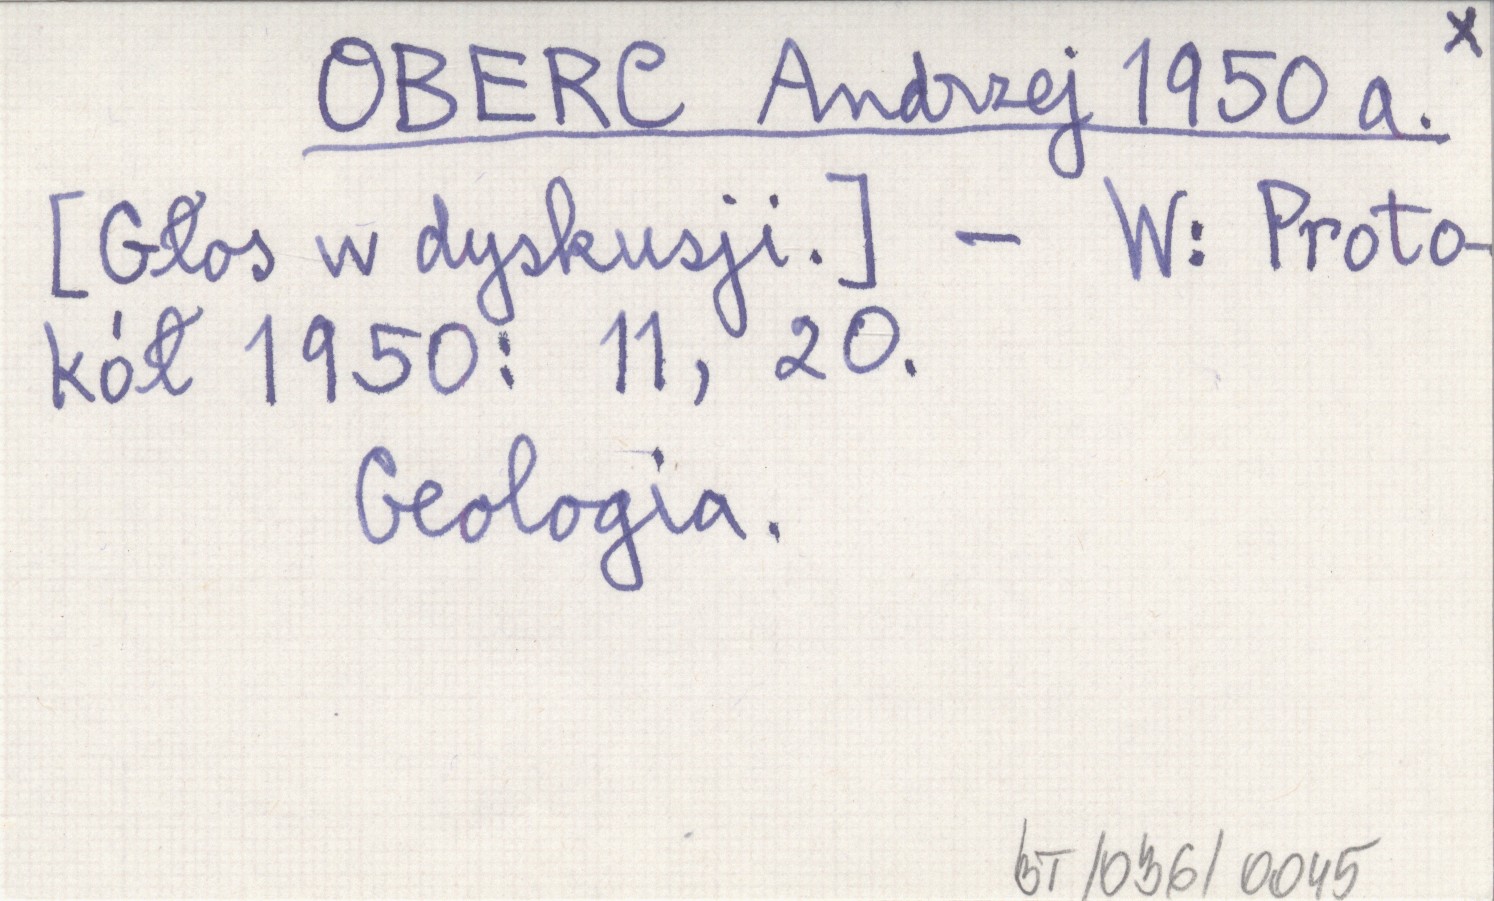 OBERC Andrzej 1950 a. x
[Głos w dyskusji.] – W: Proto-
kół 1950: 11, 20.
Geologia.
BT/036/0045